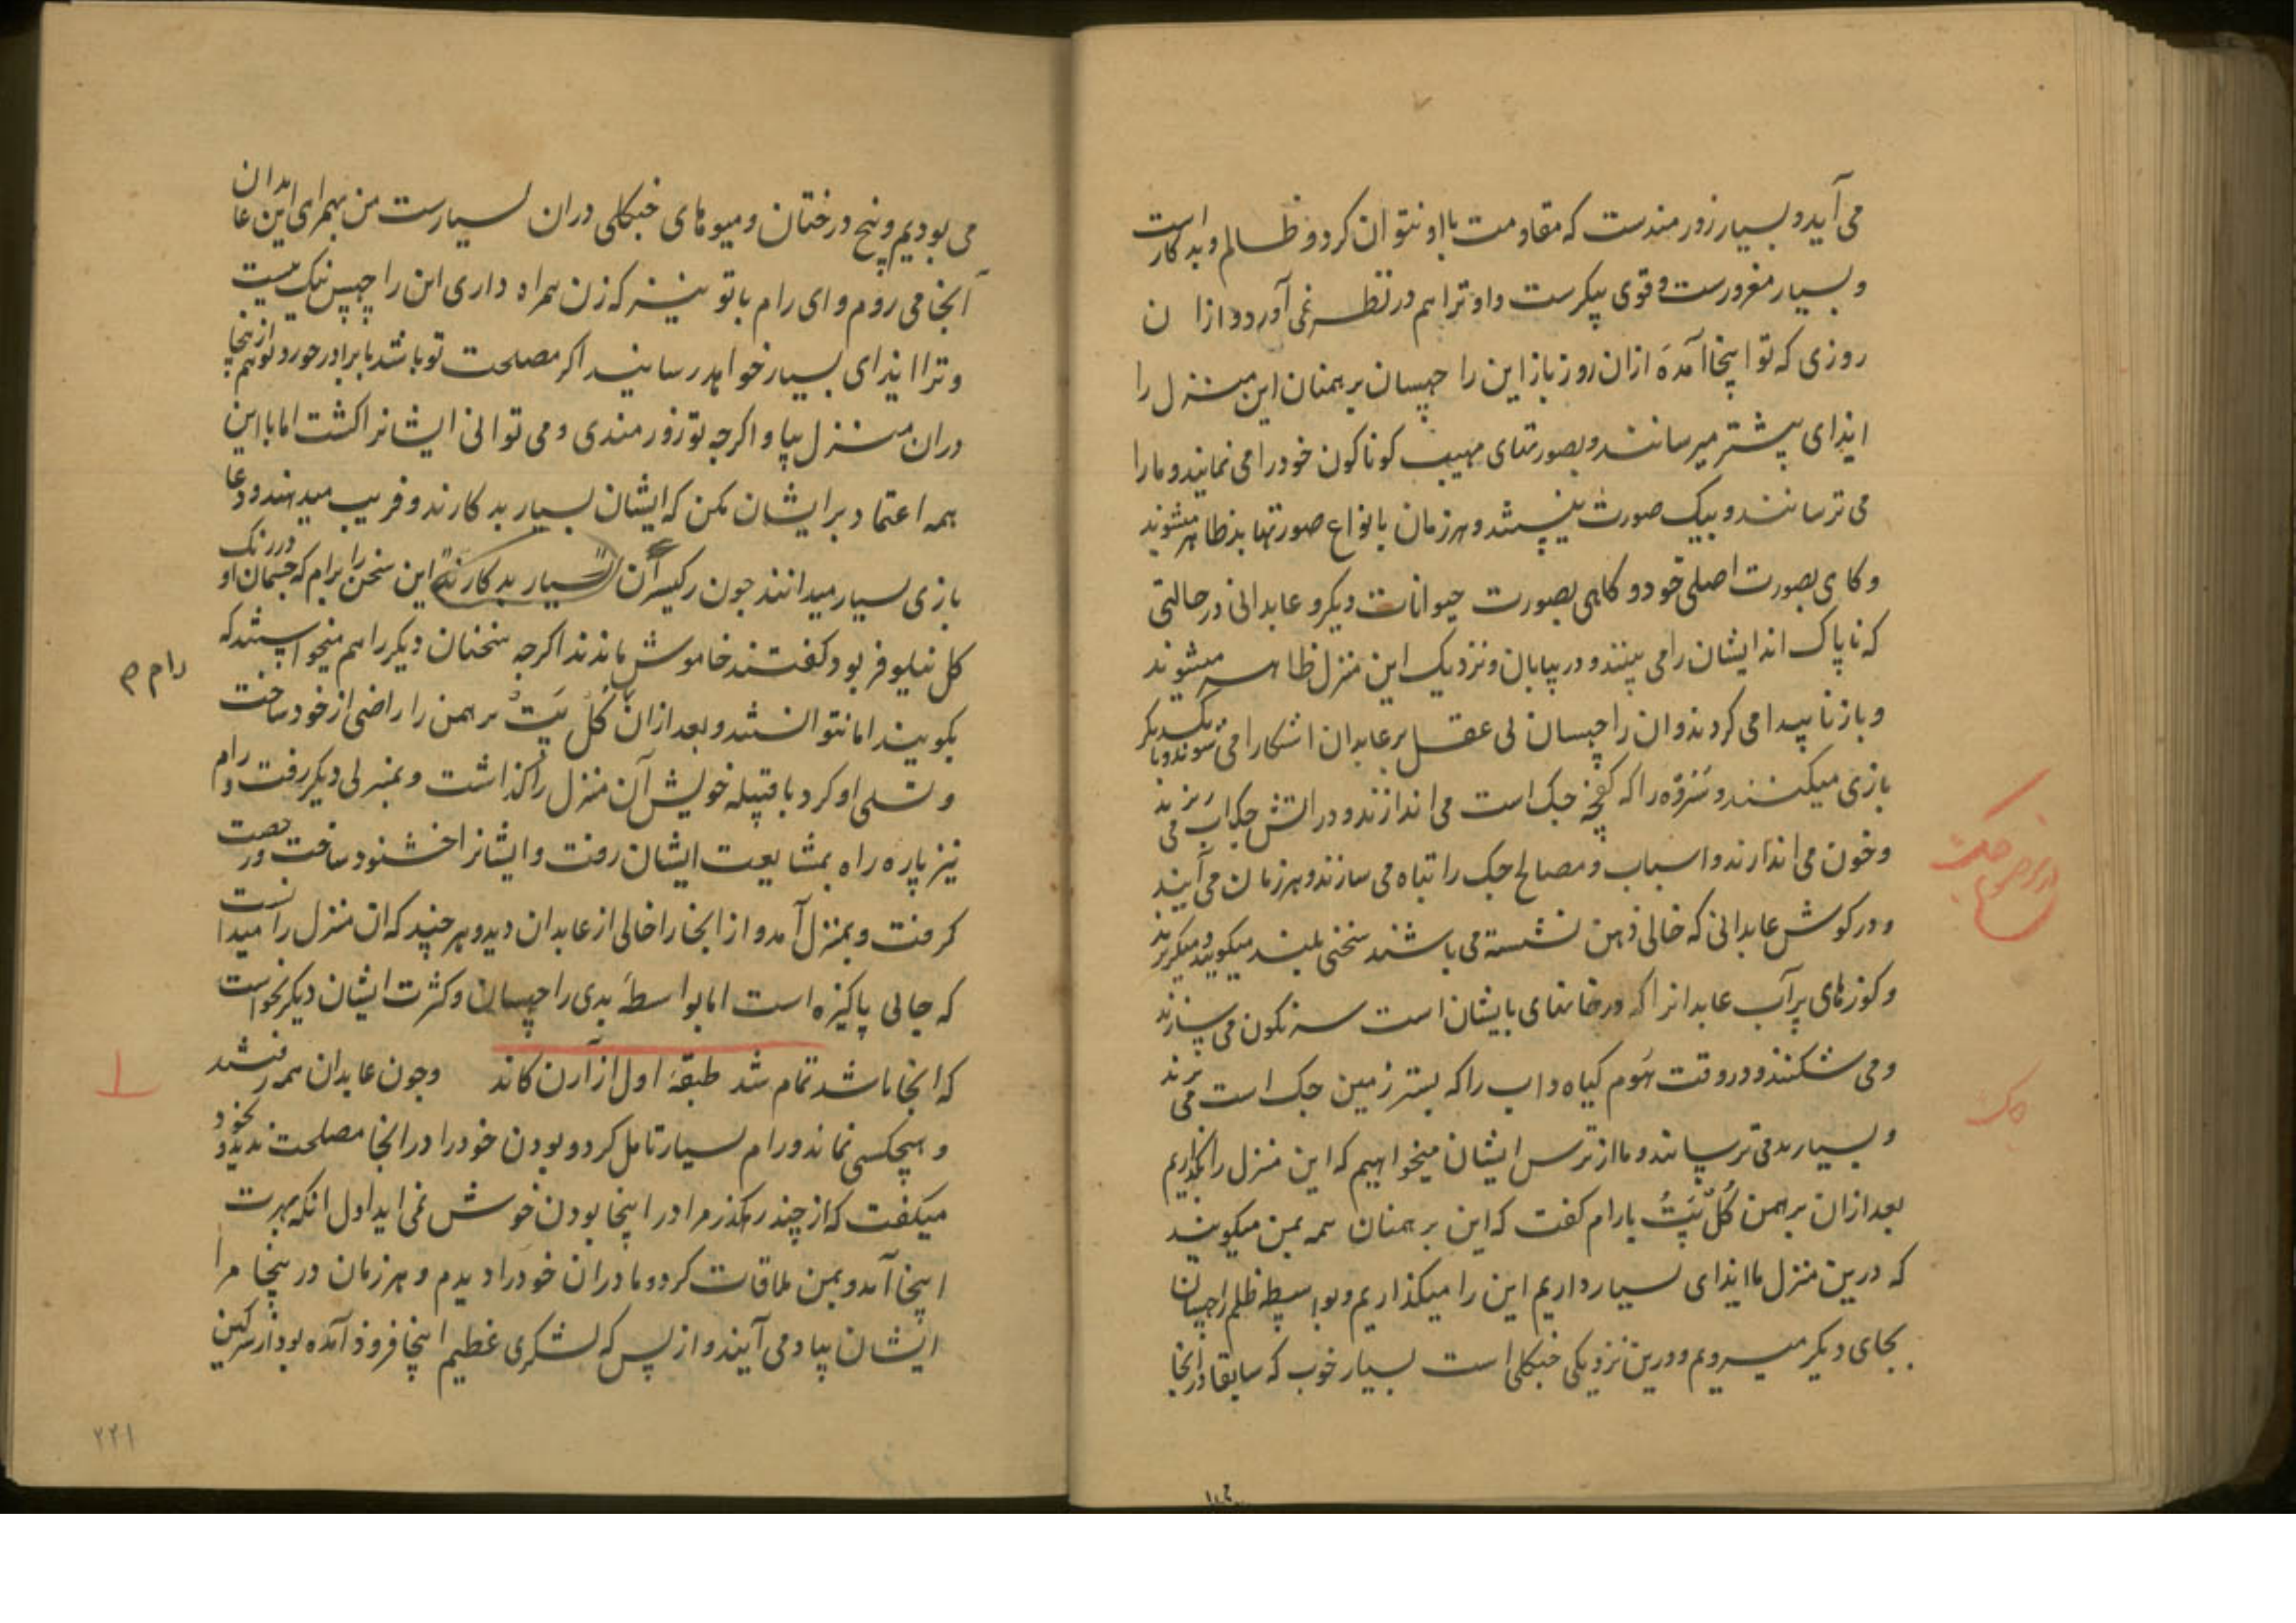 می آید و بسیار زورمندست که مقاومت با او نتوان کرد و ظالم و بدکار است
و بسیار مغرورست و قوی پیکرست و او ترا هم در نظر نمی آورد و ازان
روزی که تو اینجا آمدهٔ ازان روز باز این راچهسان برهمنان این منزل را
ایذای بیشتر میرسانند و بصورتهای مهیب کوناکون خود را می نمایند و ما را
می ترسانند و بیک صورت نیستند و هر زمان بانواع صورتها بد ظاهر میشوند
و کاهی بصورت اصلی خود و کاهی بصورت حیوانات دیکر و عابدانی در حالتی
که ناپاک اند ایشان را می بینند و در بیابان و نزدیک این منزل ظاهر میشوند
و باز ناپیدا می کردند و ان راچهسان بی عقل بر عابدان اشکارا می شوند و با یکدیکر
بازی میکنند و سروه را که کفچه جک است می اندازند و در اتش جک اب می ریزند
و خون می اندازند و اسباب و مصالح جک را تباه می سازند و هر زمان می آیند
و در کوش عابدانی که خالی ذهن نشسته می باشند سخنی بلند میکویند و میکریزند
و کوزهای پر آب عابدانرا که در خانهای بایشان است سرنکون می سازند
و می شکنند و در وقت هوم کیاه داب را که بستر زمین جک است می برند
و بسیار بد می ترسانند و ما از ترس ایشان میخواهیم که این منزل را بکذاریم
بعد ازان برهمن کُل پَتُ با رام کفت که این برهمنان همه بمن میکویند
که درین منزل ما ایذای بسیار داریم این را میکذاریم و بواسطه ظلم راچهسان
بجای دیکر میرویم و درین نزدیکی جنکلی است بسیار خوب که سابقا در انجا
جک
می بودیم و بیخ درختان و میوهای جنکلی دران بسیارست من بهمراهی این عابدان
آنجا می روم و ای رام با تو نیز که زن همراه داری این راچهس نیک نیست
و ترا ایذای بسیار خواهد رسانید اکر مصلحت تو باشد با برادر خورد تو هم از ینجا
دران منزل بیا و اکرچه تو زورمندی و می توانی ایشانرا کشت اما با این
همه اعتماد بر ایشان مکن که ایشان بسیار بد کارند و فریب میدهند و دغا
بازی بسیار میدانند چون رکیسران بسیار بد کارند این سخن را برام که چشمان او در رنک
کل نیلوفر بود کفتند خاموش ماندند اکرچه سخنان دیکر را هم میخواستند که
رام م
بکویند اما نتوانستند و بعد ازان کُل پَتُ برهمن را راضی از خود ساخت
و تسلی او کرد با قبیله خویش آن منزل را کذاشت و بمنزلی دیکر رفت و رام
نیز پاره راه بمشایعت ایشان رفت و ایشانرا خشنود ساخت و رخصت
کرفت و بمنزل آمد و از انجا را خالی از عابدان دید و هرچند که ان منزل را میدانست
که جائی پاکیزه است اما بواسطهٔ بدی راچهسان و کثرت ایشان دیکر نخواست
که انجا باشد تمام شد طبقهٔ اول از آرن کاند وچون عابدان همه رفتند
و هیچکسی نماند و رام بسیار تامل کرد و بودن خود را در انجا مصلحت ندید و بخود
میکفت که از چند رهکذر مرا در اینجا بودن خوش نمی اید اول انکه بهرت
اینجا آمد و بمن ملاقات کرد و مادران خود را دیدم و هر زمان در ینجا مرا
ایشان بیاد می آیند و از پس که لشکری عظیم اینجا فرود آمده بود از سرکین
۲۲۱